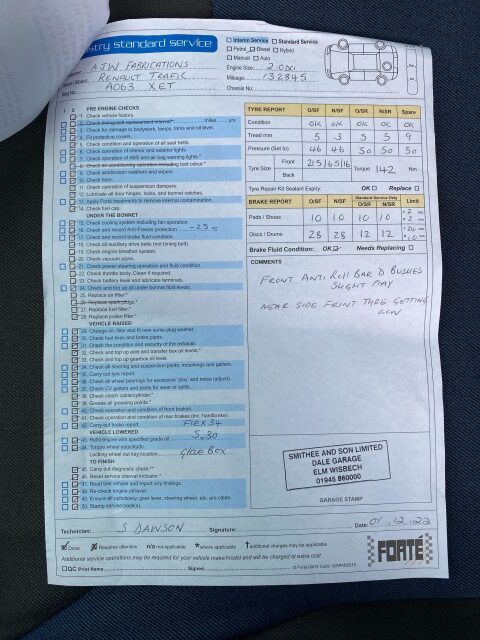 stry standard service
Interim Service Standard Service
Petrol Diesel Hybrid
Manual Auto
Engine Size: 2.0DCI
Mileage: 132845
Chassis No:
AJW FABRICATIONS
RENAULT TRAFIC
AO63 XET
I S PRE ENGINE CHECKS
1. Check vehicle history.
3. Check for damage to bodywork, lamps, trims and oil level.
4. Fit protective covers.
5. Check condition and operation of all seat belts.
6. Check operation of interior and exterior lights.
7. Check operation of ABS and air bag warning lights.*
8. Check air conditioning operation including bad odour.*
9. Check windscreen washers and wipers.
10. Check horn.
11. Check operation of suspension dampers.
12. Lubricate all door hinges, locks, and bonnet catches.
13. Apply Forté treatments to remove internal contamination.
14. Check fuel cap.
UNDER THE BONNET
15. Check cooling system including fan operation.
16. Check and record Anti-Freeze protection. -25°C
17. Check and record brake fluid condition.
18. Check all auxiliary drive belts (not timing belt).
19. Check engine breather system.
20. Check vacuum pipes.
21. Check power steering operation and fluid condition.
22. Check throttle body. Clean if required.
23. Check battery level and lubricate terminals.
24. Check and top up all under bonnet fluid levels.
25. Replace air filter.*
26. Replace spark plugs.*
27. Replace fuel filter.*
28. Replace pollen filter.*
VEHICLE RAISED
29. Change oil, filter and fit new sump plug washer.
30. Check fuel lines and brake pipes.
31. Check the condition and security of the exhaust.
32. Check and top up axle and transfer box oil levels.*
33. Check and top up gearbox oil level.
34. Check all steering and suspension joints, mountings and gaiters.
35. Carry out tyre report.
36. Check all wheel bearings for excessive 'play' and noise (adjust).
37. Check CV gaiters and joints for wear or splits.
38. Check clutch cable/cylinder.*
39. Grease all greasing points.*
40. Check operation and condition of front brakes.
41. Check operation and condition of rear brakes (inc. handbrake).
42. Carry out brake report. FLEX34
VEHICLE LOWERED
43. Refill engine with specified grade oil 5.30
44. Torque wheel nuts/studs.
Locking wheel nut key location: GLOVE BOX
TO FINISH
45. Carry out diagnostic check.*†
46. Reset service interval indicator.*
47. Road test vehicle and report any findings.
48. Re-check engine oil level.
49. Ensure all upholstery, gear lever, steering wheel, etc. are clean.
50. Stamp service book(s).
TYRE REPORT O/SF N/SF O/SR N/SR Spare
Condition OK OK OK OK OK
Tread mm 5 3 5 5 9
Pressure (Set to) 46 46 50 50 50
Tyre Size Front 215/65/16 Torque 142 Nm
Back
Tyre Repair Kit Sealant Expiry: OK Replace
BRAKE REPORT O/SF N/SF Standard Service Only O/SR N/SR Limit
Pads / Shoes 10 10 10 10
Discs / Drums 28 28 12 12
Brake Fluid Condition: OK Needs Replacing
COMMENTS
FRONT ANTI ROLL BAR D BUSHES
SLIGHT PLAY
NEAR SIDE FRONT TYRE GETTING
LOW
SMITHEE AND SON LIMITED
DALE GARAGE
ELM WISBECH
01945 860000
GARAGE STAMP
Technician: S DAWSON Signature: Date: 01.12.22
Done Requires attention n/a not applicable *where applicable † additional charges may be applicable
Additional service operations may be required for your vehicle make/model and will be charged at extra cost
QC Print Name Signed
FORTÉ